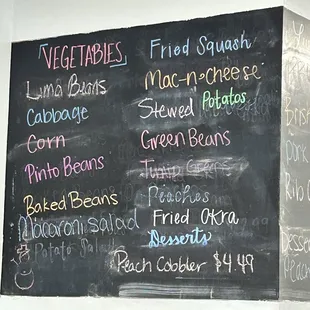 VEGETABLES
Lima Beans
Cabbage
Corn
Pinto Beans
Baked Beans
Macaroni salad
Potato Salad
Fried Squash
Mac-n-cheese
Stewed Potatos
Green Beans
Turnip Greens
Peaches
Fried Okra
Desserts
Peach Cobbler $4.49